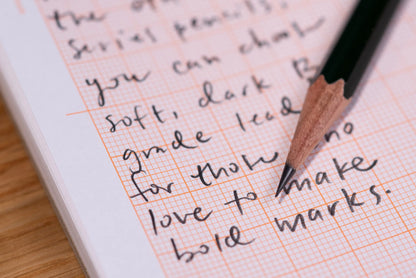 the
serial pencils,
you can choose
soft, dark B
grade lead
for those who
love to make
bold marks.